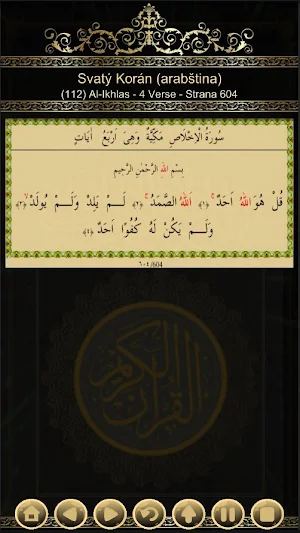 Svatý Korán (arabština)
(112) Al-Ikhlas - 4 Verse - Strana 604
سُورَةُ الْاِخْلَاصِ مَكِّيَّةٌ وَهِىَ اَرْبَعُ اٰيَاتٍ
بِسْمِ اللهِ الرَّحْمٰنِ الرَّحِيمِ
قُلْ هُوَ اللهُ اَحَدٌ ﴿١﴾ اَللهُ الصَّمَدُ ﴿٢﴾ لَمْ يَلِدْ وَلَمْ يُولَدْ ﴿٣﴾
وَلَمْ يَكُنْ لَهُ كُفُوًا اَحَدٌ ﴿٤﴾
٦٠٤/604
القرآن الكريم